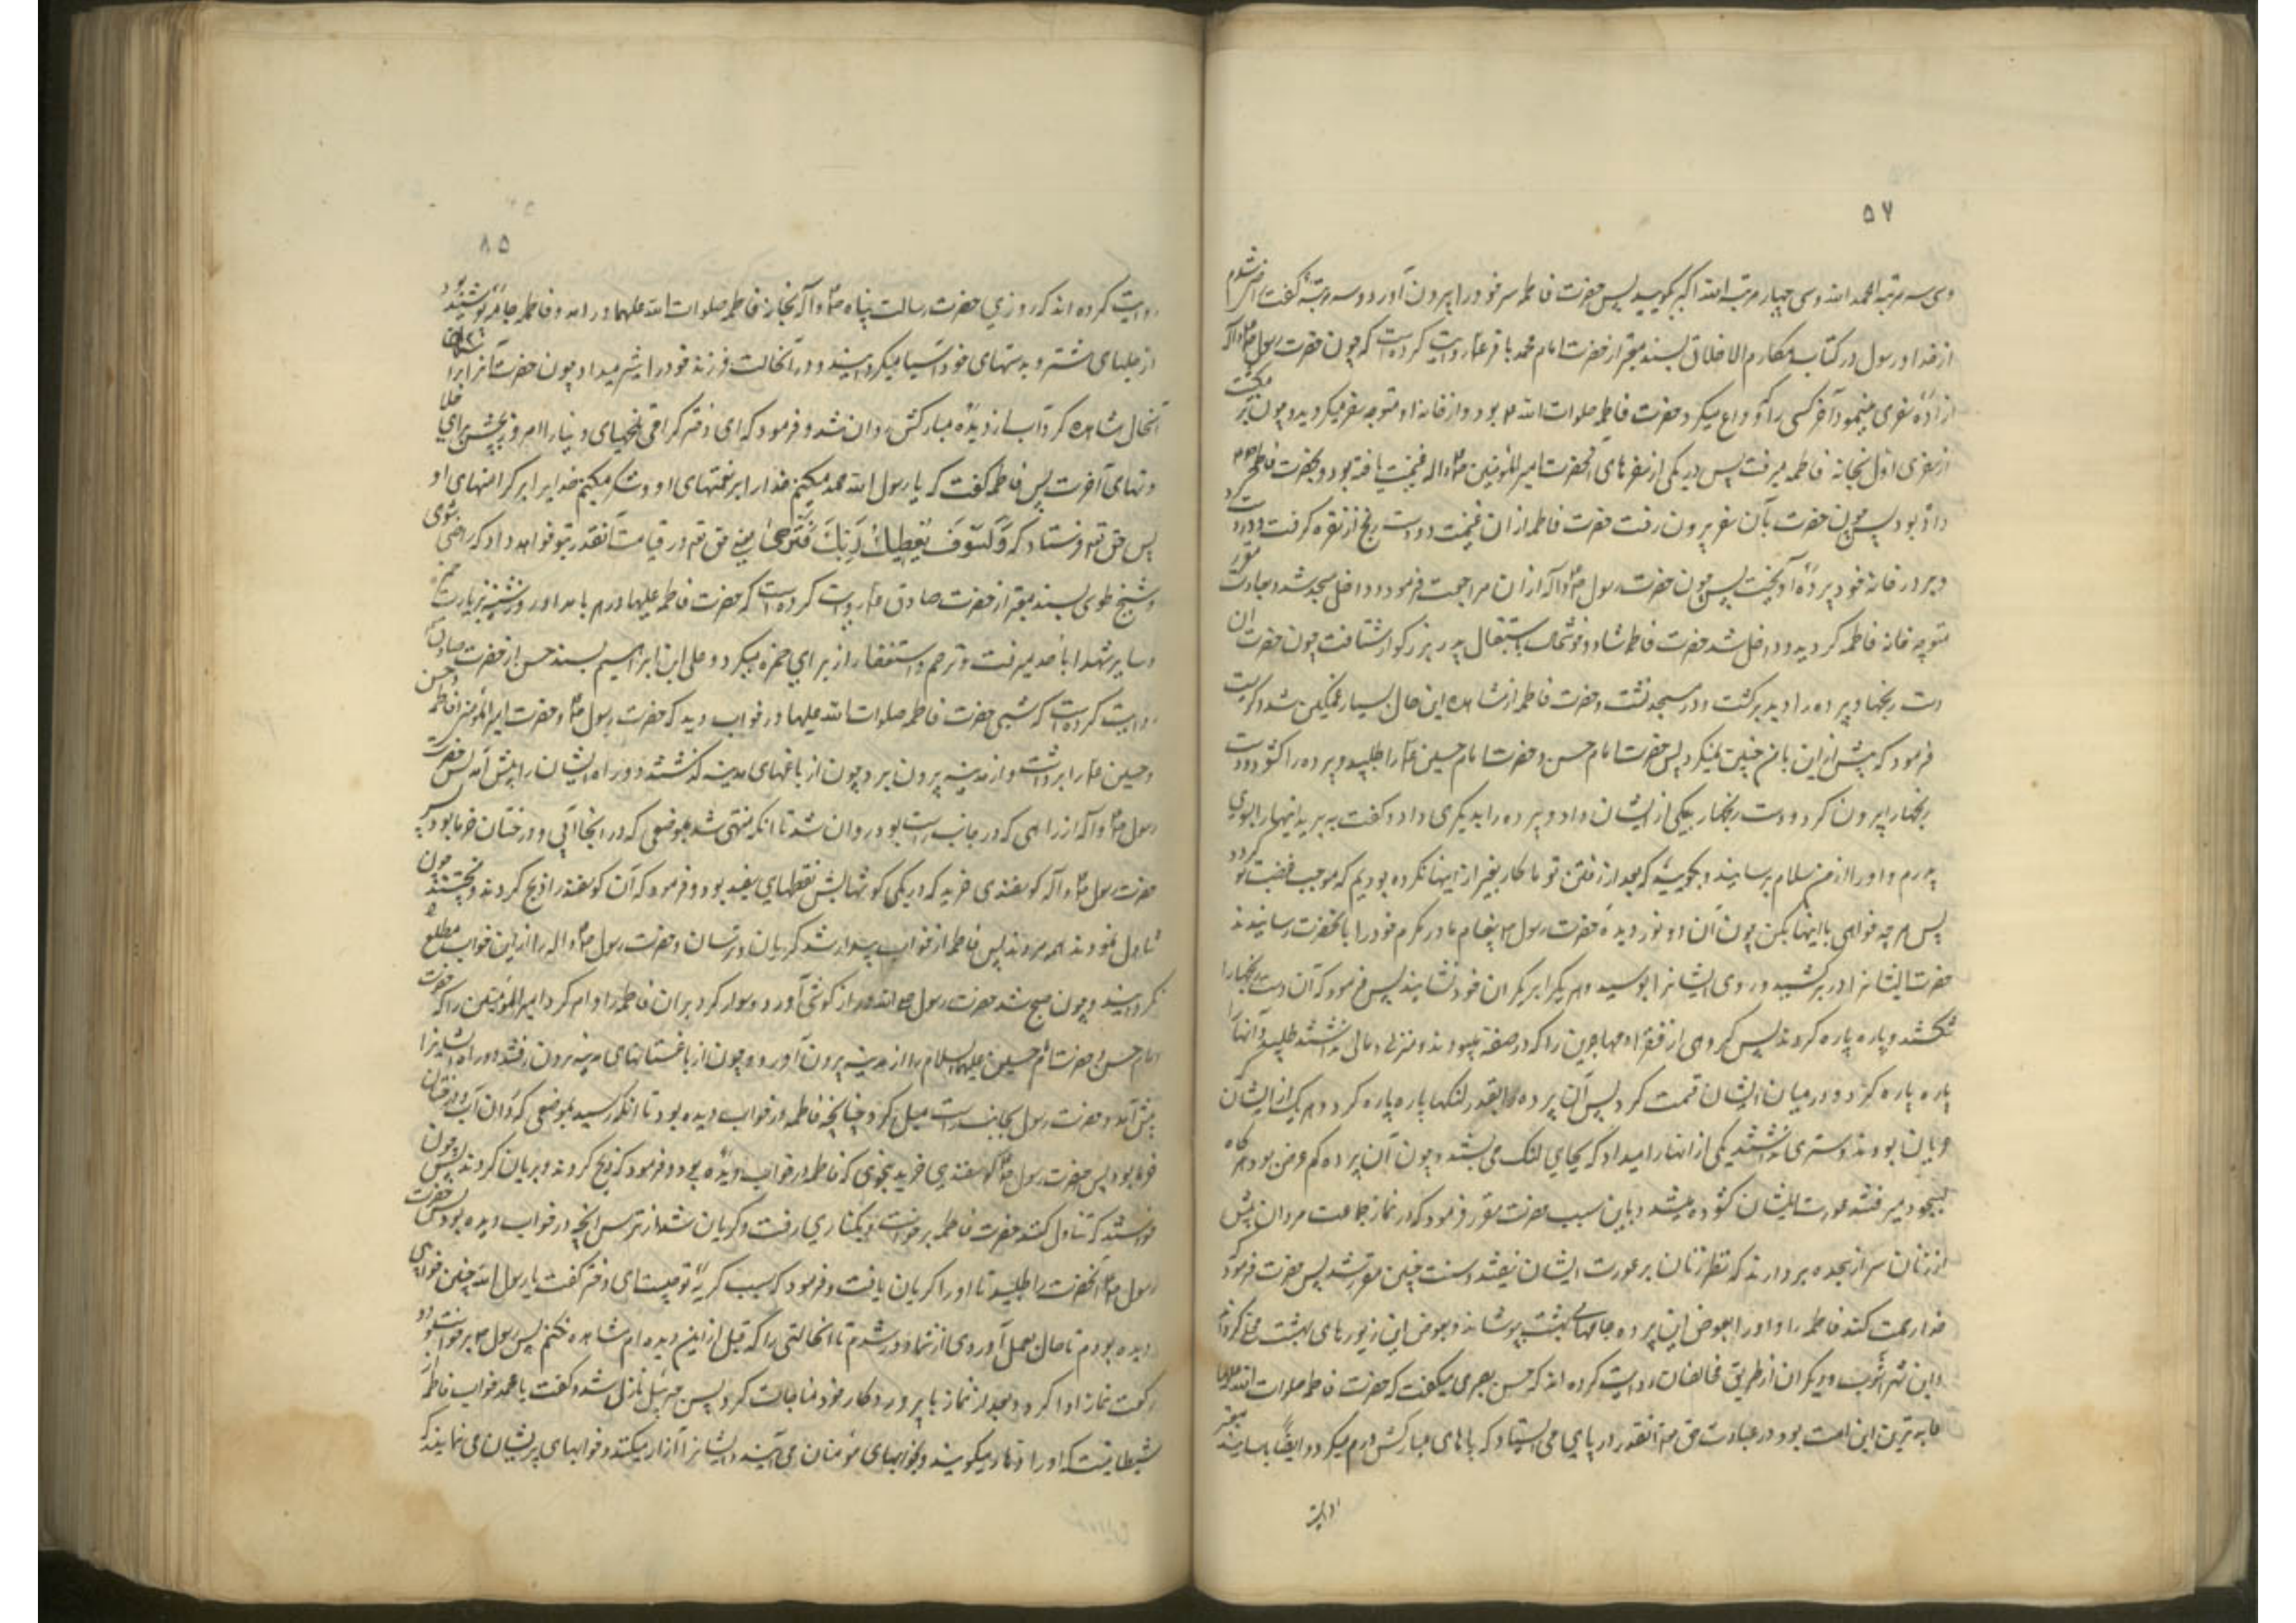 ۵۷
وسی سه مرتبه الحمد الله وسی چهار مرتبه الله اکبر بگویید پس حضرت فاطمه سر خود را بیرون آورد و سه مرتبه گفت راضی شدم
از خدا و رسول و در کتاب مکارم الاخلاق بسند معتبر از حضرت امام محمد باقر ع روایت کرده است که چون حضرت رسول ص و آله
اراده سفری مینمود آخر کسی را که وداع میکرد حضرت فاطمه صلوات الله بود و از خانه او متوجه سفر میگردید و چون بر میگشت
از سفری اول بخانه فاطمه میرفت پس در یکی از سفرهای آنحضرت امیر المؤمنین ص و اله غنیمتی یافته بود و بحضرت فاطمه
داده بود پس چون حضرت بآن سفر بیرون رفت حضرت فاطمه از ان غنیمت دو دست رنج از نقره گرفت و در دست کرد
و بر در خانه خود پرده آویخت پس چون حضرت رسول ص و آله از ان مراجعت فرمود و داخل مسجد شد و بعادت مقرر
متوجه خانه فاطمه گردید و داخل شد حضرت فاطمه شاد و خوشحال باستقبال پدر بزرگوار شتافت چون حضرت ان
دست رنجها و پرده را دید برگشت و در مسجد نشست و حضرت فاطمه از مشاهده این حال بسیار غمگین شد و گریست
فرمود که پیش از این با من چنین نمیکرد پس حضرت امام حسن و حضرت امام حسین ع را طلبید و پرده را گشود و دست
رنجها را بیرون کرد و دست رنجها را بیکی از ایشان داد و پرده را بدیگری داد و گفت ببرید اینها را بسوی
پدرم و او را از من سلام برسانید و بگویید که بعد از رفتن تو ما کار بغیر از اینها نکرده بودیم که موجب غضب تو گردد
پس هر چه خواهی با اینها بکن چون آن دو نور دیده حضرت رسول پیغام مادر مکرم خود را بانحضرت رسانیدند
حضرت ایشانرا در بر کشید و روی ایشانرا بوسید و هر یک را بر یکران خود نشانید پس فرمود که آن دست رنجها را
شکستند و پاره پاره کردند پس گروهی از فقراء مهاجرین را که در صفه میبودند و منزلی و مالی نداشتند طلبید و آنها را
پاره پاره کرد و در میان ایشان قسمت کرد پس آن پرده را بقدر لنگها پاره پاره کرد و هر یک از ایشان
عریان بودند و ستری نداشتند یکی از انها را میداد که بجای لنگ می بستند و چون آن پرده کم عرض بود هر گاه
بسجود میرفتند عورت ایشان گشوده میشد و باین سبب حضرت مقرر فرمود که در نماز جماعت مردان پیش
از زنان سر از سجده بردارند که نظر زنان بر عورت ایشان نیفتد و سنت چنین مقرر شد پس حضرت فرمود که
خدا رحمت کند فاطمه را و او را بعوض این پرده جامهای بهشت بپوشاند و بعوض این زیورهای بهشت عطا کرداند
و ابن شهر آشوب و دیگران از طریق مخالفان روایت کرده اند که حسن بصری میگفت که حضرت فاطمه صلوات الله علیها
عابد ترین این امت بود و در عبادت حق تع آنقدر در پای می ایستاد که پاهای مبارکش ورم میکرد و ایضا باسانید معتبر
روایت
۸۵
روایت کرده اند که روزی حضرت رسالت پناه ص و آله بخانه فاطمه صلوات الله علیهما در امد و فاطمه جامه پوشیده بود
از جلهای شتر و بدستهای خود آسیا میگردانید و در آنحالت فرزند خود را شیر میداد چون حضرت آنرا بر آن
آنحال مشاهده کرد آب از دیده مبارکش روان شد و فرمود که ای دختر گرامی تلخیهای دنیا را امروز بچش برای
حلاوتهای آخرت پس فاطمه گفت که یا رسول الله حمد میکنم خدا را بر نعمتهای او و شکر میکنم خدا را بر کرامتهای او
پس حق تع فرستاد که وَلَسَوْفَ یُعْطِیکَ رَبُّکَ فَتَرْضیٰ یعنی حق تع در قیامت آنقدر بتو خواهد داد که راضی شوی
و شیخ طوسی بسند معتبر از حضرت صادق ع روایت کرده است که حضرت فاطمه علیها در هر بامداد روز شنبه بزیارت حمزه
و سایر شهدا باحد میرفت و ترحم و استغفار از برای حمزه میکرد و علی ابن ابراهیم بسند حسن از حضرت صادق
روایت کرده است که شبی حضرت فاطمه صلوات الله علیها در خواب دید که حضرت رسول ص و حضرت امیر المؤمنین و فاطمه و حسن
و حسین ع را برداشت و از مدینه بیرون برد چون از باغهای مدینه گذشتند دو راه ایشان را پیش آمد پس حضرت
رسول ص و آله از راهی که در جانب راست بود روان شد تا انکه منتهی شد بموضعی که در انجا آبی و درختان خرما بود پس
حضرت رسول ص و آله گوسفندی خرید که در یکی گوشهایش نقطهای سفید بود و فرمود که آن گوسفند را ذبح کردند و پختند چون
تناول نمودند همه مردند پس فاطمه از خواب بیدار شد گریان و ترسان و حضرت رسول ص و اله را از این خواب مطلع
نکردانید و چون صبح شد حضرت رسول درازگوشی آورد و سوار کرد بران فاطمه را و امر کرد امیر المؤمنین را که حضرت
امام حسن و حضرت امام حسین علیهما السلام را از مدینه بیرون آورد و چون از باغستانهای مدینه بیرون رفتند دو راه ایشانرا
پیش آمد و حضرت رسول بجانب راست میل کرد چنانچه فاطمه در خواب دیده بود تا انکه رسید بموضعی که در ان آب و درختان
خرما بود پس حضرت رسول ص گوسفندی خرید بنحوی که فاطمه در خواب دیده بود و فرمود که ذبح کردند و بریان کردند پس چون
خواستند که تناول کنند حضرت فاطمه برخواست و بکناری رفت و گریان شد از ترس انچه در خواب دیده بود پس حضرت
رسول ص آنحضرت را طلبید تا او را گریان یافت و فرمود که سبب گریه تو چیست ای دختر گفت یا رسول الله چنین خوابی
دیده بودم تا حال بعمل آوردی از شما دور شدم تا انحالتی را که قبل از این دیده ام مشاهده نکنم پس رسول ص برخواست و دو
رکعت نماز ادا کرد و بعد از نماز با پروردگار خود مناجات کرد پس جبرئیل نازل شد و گفت یا محمد خواب فاطمه
شیطانیست که او را دها میگویند و بخوابهای مؤمنان می آید و ایشانرا آزار میکند و خوابهای پریشان می نمایند که